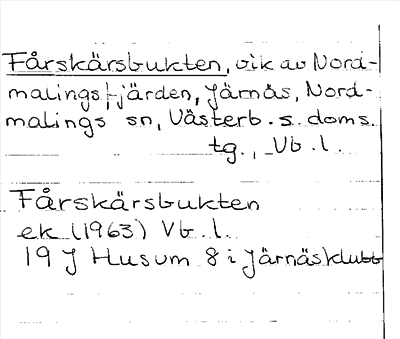 Fårskärsbukten, vik av Nord-
malingsfjärden, Järnäs, Nord-
malings sn, Västerb. s. doms.
tg., Vb. l.
Fårskärsbukten
ek (1963) Vb. l.
19 J Husum 8 i Järnäsklubb